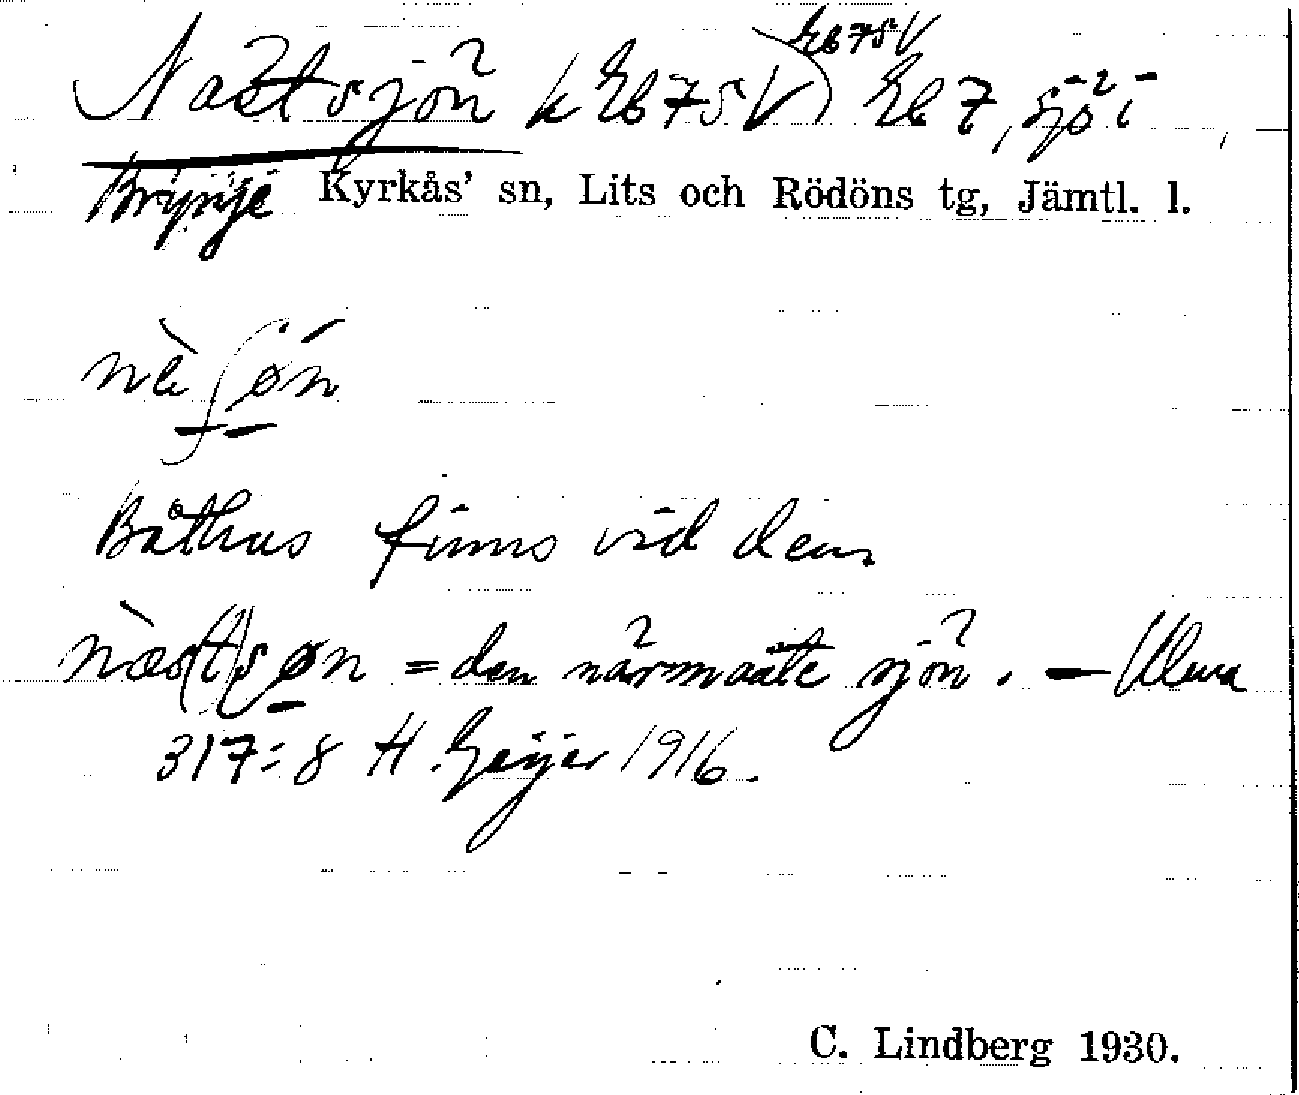 Eb75V
Nästsjön k Eb75V) Eb 7, sjö i
Brynje Kyrkås' sn, Lits och Rödöns tg, Jämtl. l.
nèʃøn
Båthus finns vid den
næs(t)ʃøn = den närmaste sjön. — Ulma
317:8 H. Geijer 1916.
C. Lindberg 1930.